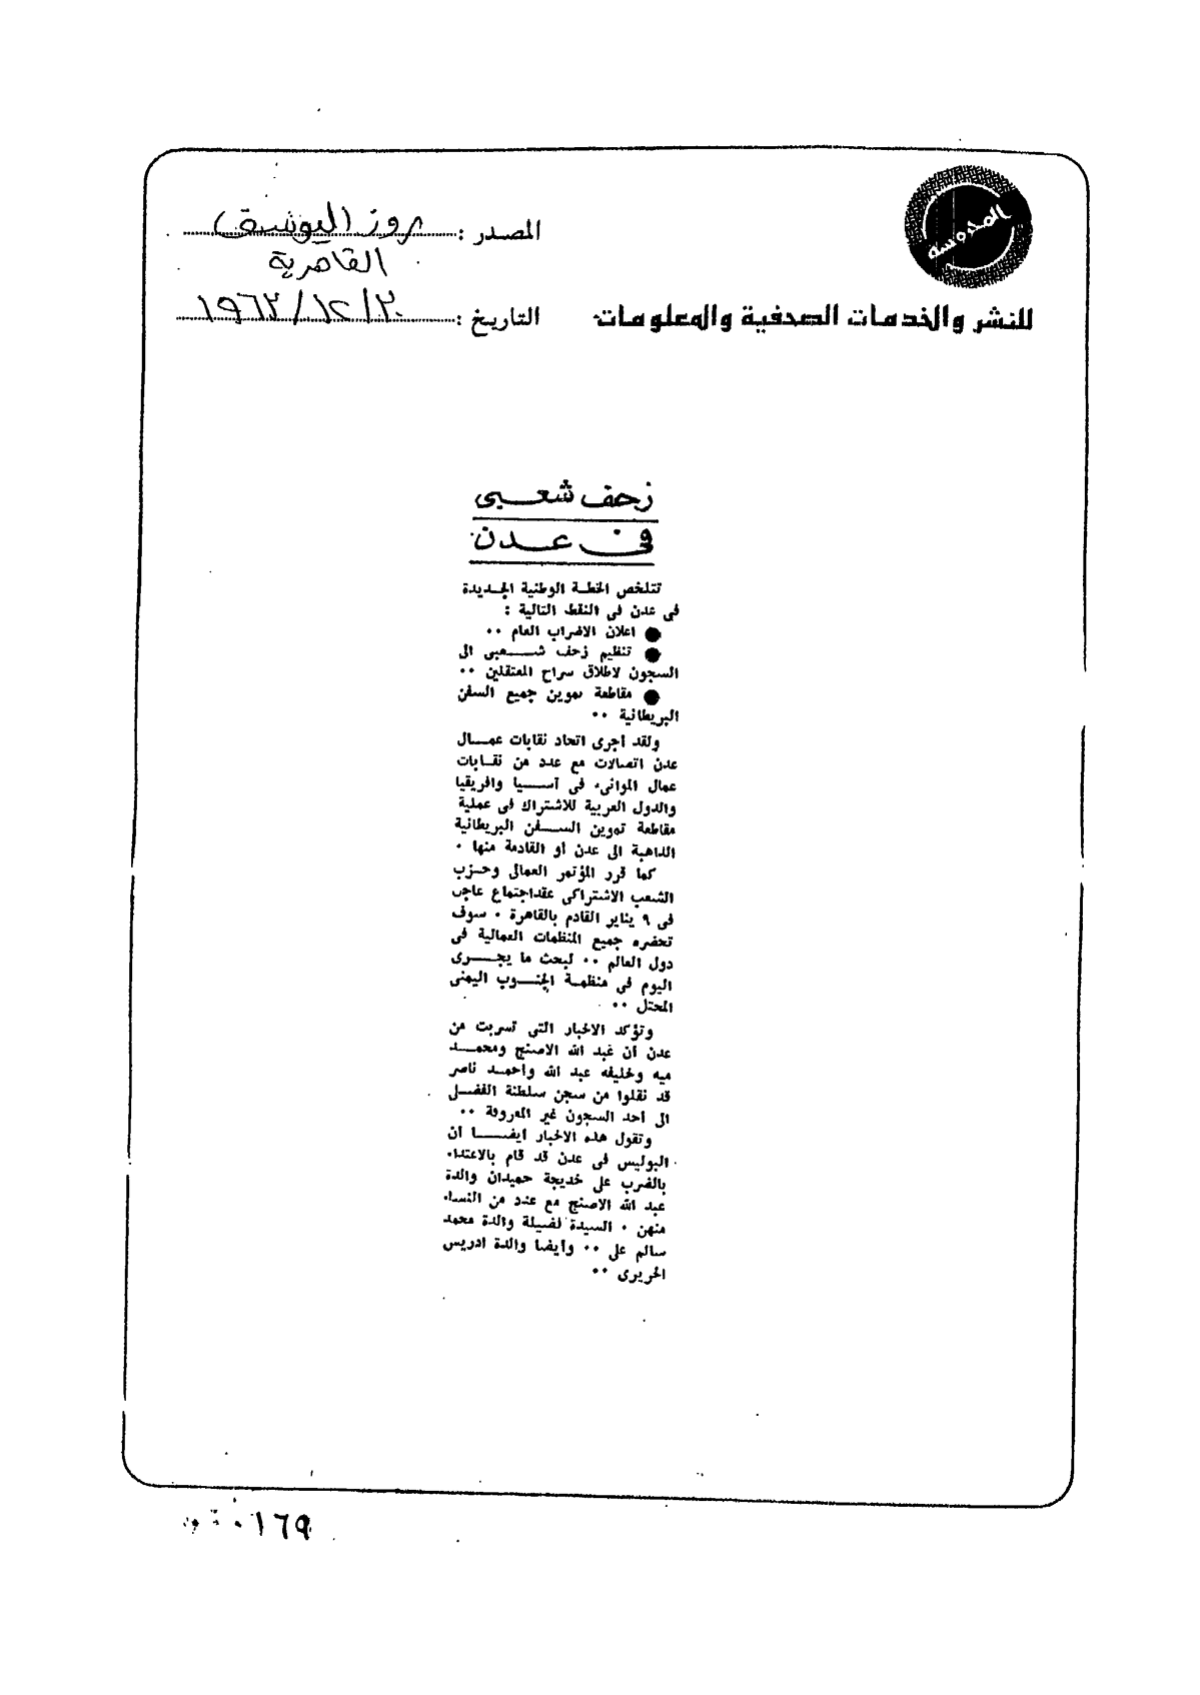 المحروسة
المصدر : روز اليوسف
القاهرية
للنشر والخدمات الصحفية والمعلومات
التاريخ :
زحف شعبى
فى عدن
تتلخص الخطة الوطنية الجديدة
فى عدن فى النقط التالية :
● اعلان الاضراب العام ..
● تنظيم زحف شعبى الى
السجون لاطلاق سراح المعتقلين ..
● مقاطعة تموين جميع السفن
البريطانية ..
ولقد اجرى اتحاد نقابات عمال
عدن اتصالات مع عدد من نقابات
عمال الموانىء فى آسيا وافريقيا
والدول العربية للاشتراك فى عملية
مقاطعة تموين السفن البريطانية
الذاهبة الى عدن أو القادمة منها .
كما قرر المؤتمر العمالى وحزب
الشعب الاشتراكى عقد اجتماع عاجل
فى ٩ يناير القادم بالقاهرة . سوف
تحضره جميع المنظمات العمالية فى
دول العالم .. لبحث ما يجرى
اليوم فى منظمة الجنوب اليمنى
المحتل ..
وتؤكد الاخبار التى تسربت من
عدن أن عبد الله الاصنج ومحمد
ميه وخليفه عبد الله واحمد ناصر
قد نقلوا من سجن سلطنة الفضل
الى احد السجون غير المعروفة ..
وتقول هذه الاخبار ايضا ان
البوليس فى عدن قد قام بالاعتداء
بالضرب على خديجة حميدان والدة
عبد الله الاصنج مع عدد من النساء
منهن . السيدة لضيلة والدة محمد
سالم على .. وأيضا والدة ادريس
الحريرى ..
٠١٦٩